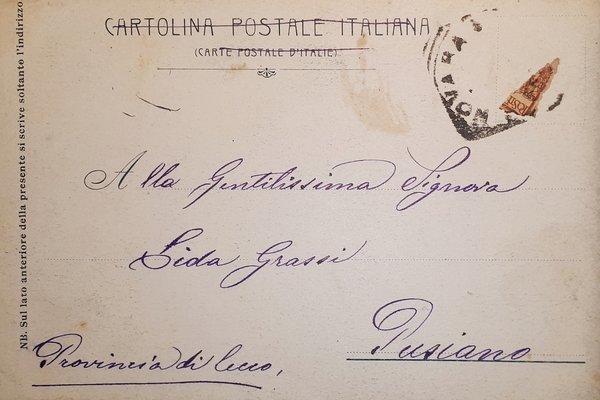 CARTOLINA POSTALE ITALIANA
(CARTE POSTALE D'ITALIE)
NOVARA
Alla Gentilissima Signora
Lida Grassi
Pusiano
Provincia di Lecco,
NB. Sul lato anteriore della presente si scrive soltanto l'indirizzo